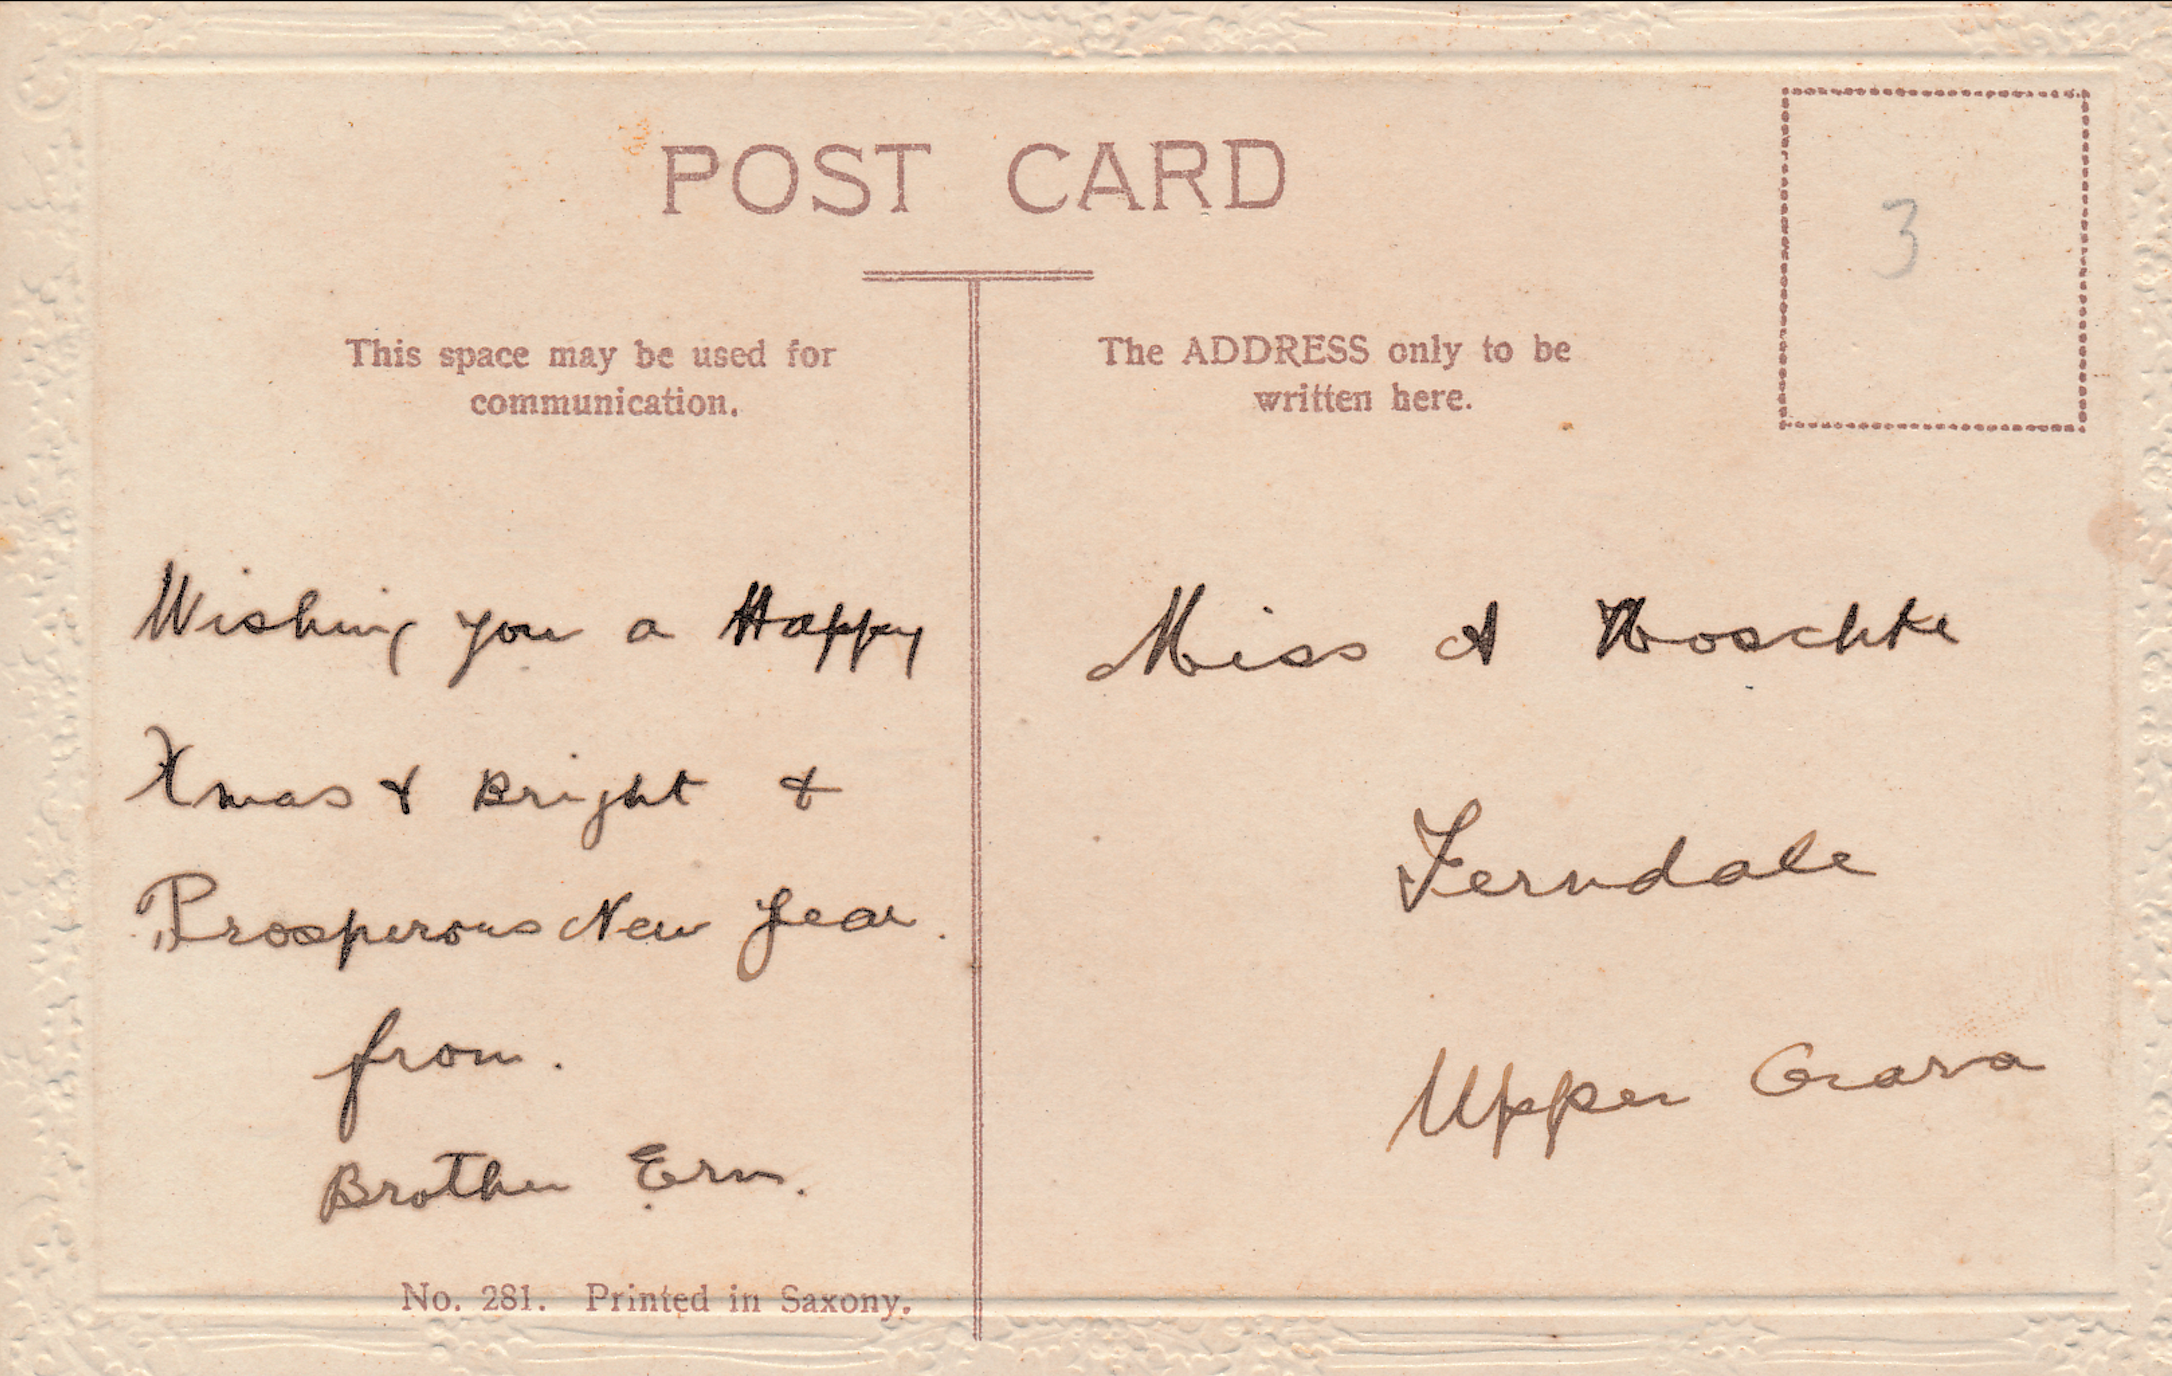 POST CARD
3
This space may be used for
communication.
The ADDRESS only to be
written here.
Wishing you a Happy
Xmas & Bright &
Prosperous New Year.
from.
Brother Ern.
Miss A Noschke
Ferndale
Upper Gara
No. 281. Printed in Saxony.